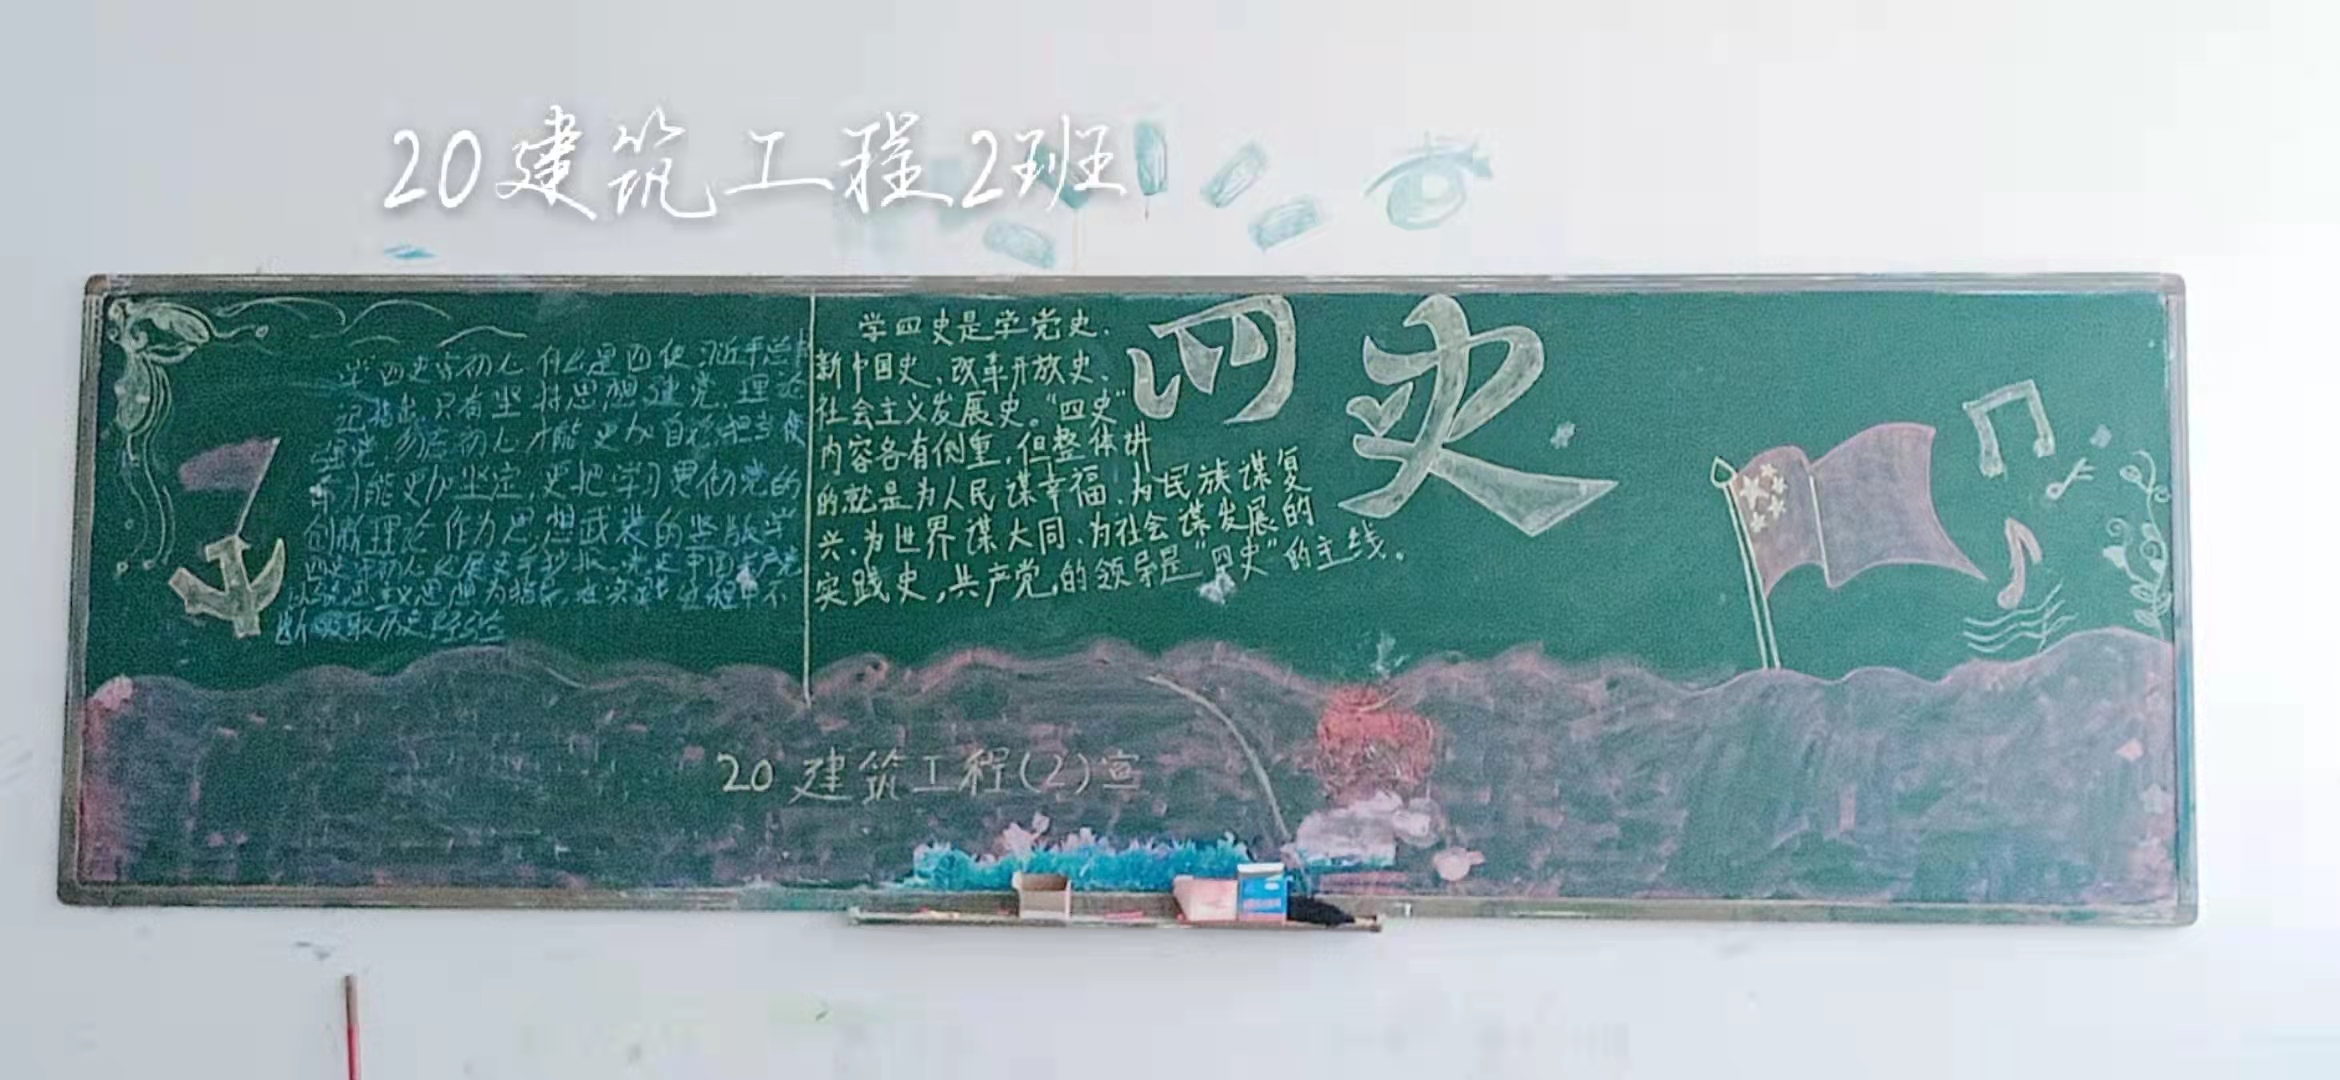 20建筑工程2班
学四史守初心 什么是四史,习近平总书
记指出,只有坚持思想建党、理论
强党,勿忘初心才能更加自
才能更加坚定,更把学习贯彻党的
创新理论作为思想武装的
断吸取历史经验
学四史是学党史、
新中国史、改革开放史、
社会主义发展史。“四史”
内容各有侧重,但整体讲
的就是为人民谋幸福、为民族谋复
兴、为世界谋大同、为社会谋发展的
实践史,共产党的领导是“四史”的主线。
四史
20建筑工程(2)宣